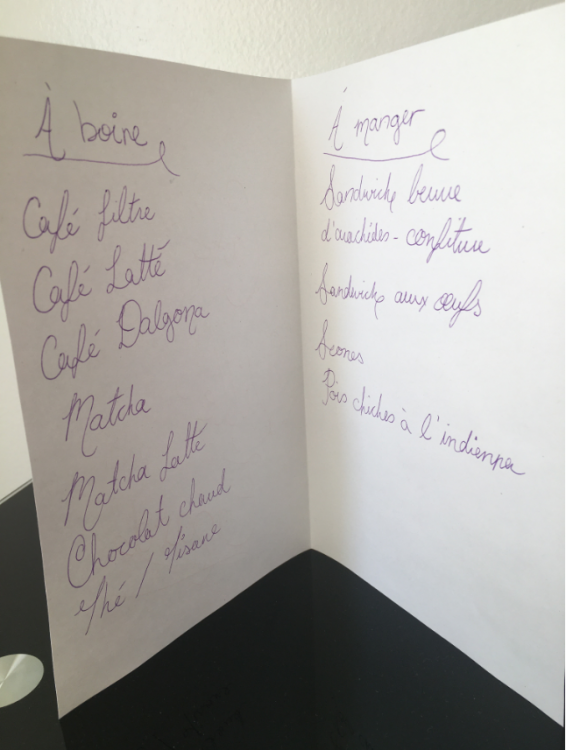 À boire
Café filtre
Café Latté
Café Dalgona
Matcha
Matcha Latté
Chocolat chaud
Thé / Tisane
À manger
Sandwich beurre
d'arachides - confiture
Sandwich aux œufs
Scones
Pois chiches à l'indienne